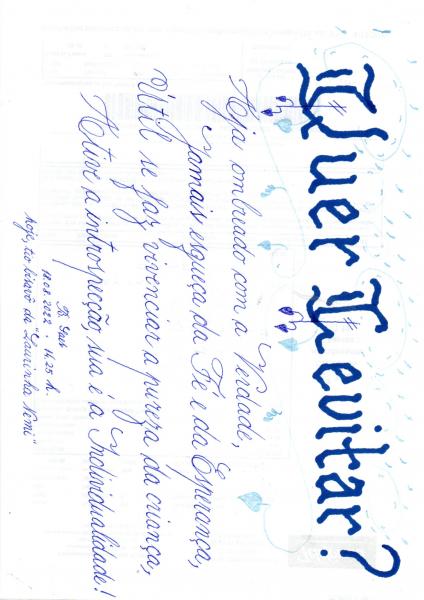 Quer Levitar?
Aja ombreado com a Verdade,
Jamais esqueça da Fé e da Esperança,
Útil se faz vivenciar a pureza da criança,
Ative a introspecção, sua é a Individualidade!
18.08.2022 - 16.25 h.
hoje, tio bisavô da "Laurinha Nomi"